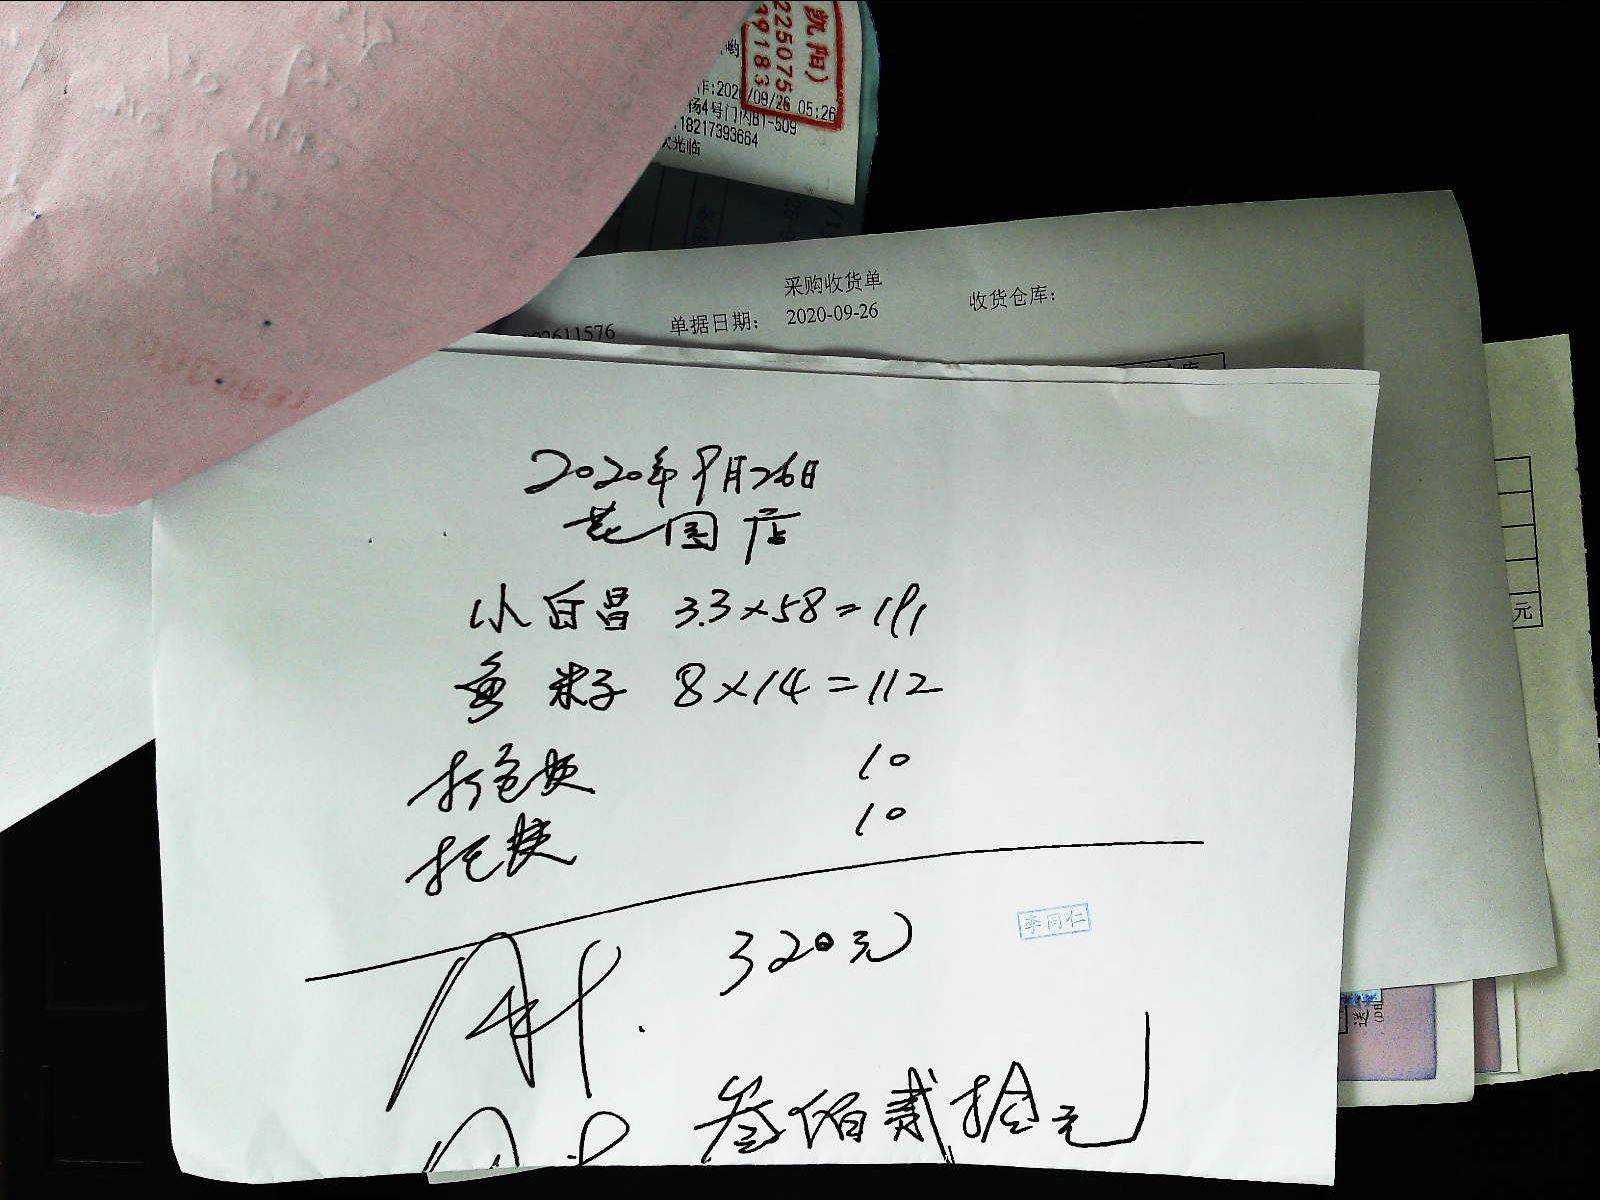 凯阳)
225075
99183
作:2020/09/26 05:26
扬4号门内B1-509
18217393664
次光临
采购收货单
02611576 单据日期: 2020-09-26 收货仓库:
2020年9月26日
花园店
小白昌 3.3×58=191
鱼籽子 8×14=112
打包费 10
托费 10
320元
李同仁
叁佰贰拾元
元
送